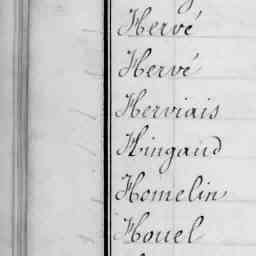 Hervé
Hervé
Herviais
Hingaud
Homelin
Houel